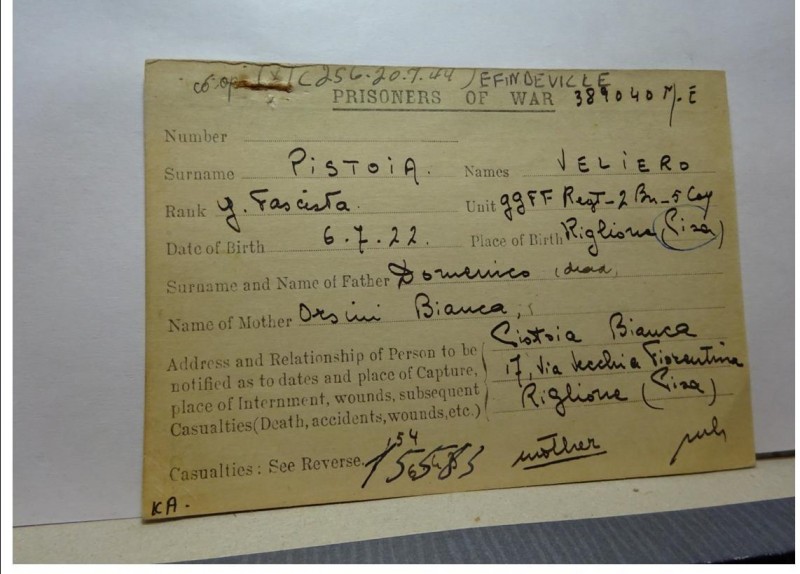 (256-20.7.44) EFINDEVILLE
PRISONERS OF WAR 389040 M.E
Number
Surname PISTOIA. Names VELIERO
Rank g. Fascista. Unit ggFF Regt-2 Bn-5 Coy
Date of Birth 6.7.22. Place of Birth Riglione (Pisa)
Surname and Name of Father Domenico (dead)
Name of Mother Orsini Bianca,
Address and Relationship of Person to be
notified as to dates and place of Capture,
place of Internment, wounds, subsequent
Casualties(Death, accidents, wounds, etc.)
Pistoia Bianca
17, Via Vecchia Fiorentina
Riglione (Pisa)
Casualties: See Reverse. mother
KA.